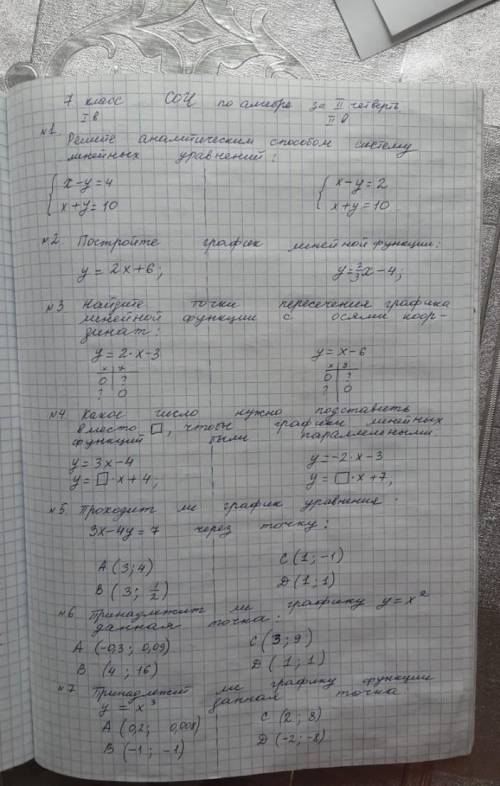 7 класс СОЧ по алгебре за II четверть
I в II в
№1. Решите аналитическим способом систему
линейных уравнений:
{ x-y=4 { x-y=2
x+y=10 x+y=10
№2 Постройте график линейной функции:
y=2x+6; y=2/3x-4;
№3 Найдите точки пересечения графика
линейной функции с осями коор-
динат:
y=2·x-3 y=x-6
x | y x | y
0 | ? 0 | ?
? | 0 ? | 0
№4 Какое число нужно подставить
вместо □, чтобы графики линейных
функций были параллельными.
y=3x-4 y=-2·x-3
y=□·x+4; y=□·x+7,
№5. Проходит ли график уравнения
3x-4y=7 через точку:
A (3; 4) C (1; -1)
B (3; 1/2) D (1; 1)
№6 Принадлежит ли графику y=x²
данная точка:
A (-0,3; 0,09) C (3; 9)
B (4; 16) D (1; 1)
№7 Принадлежит ли графику функции
y=x³ данная точка
A (0,2; 0,008) C (2; 8)
B (-1; -1) D (-2; -8)